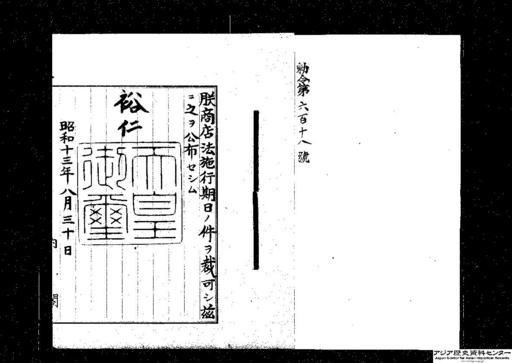 勅令第六百十八號
朕商店法施行期日ノ件ヲ裁可シ茲
ニ之ヲ公布セシム
裕仁
天皇
御璽
昭和十三年八月三十日
内閣
アジア歴史資料センター
Japan Center for Asian Historical Records